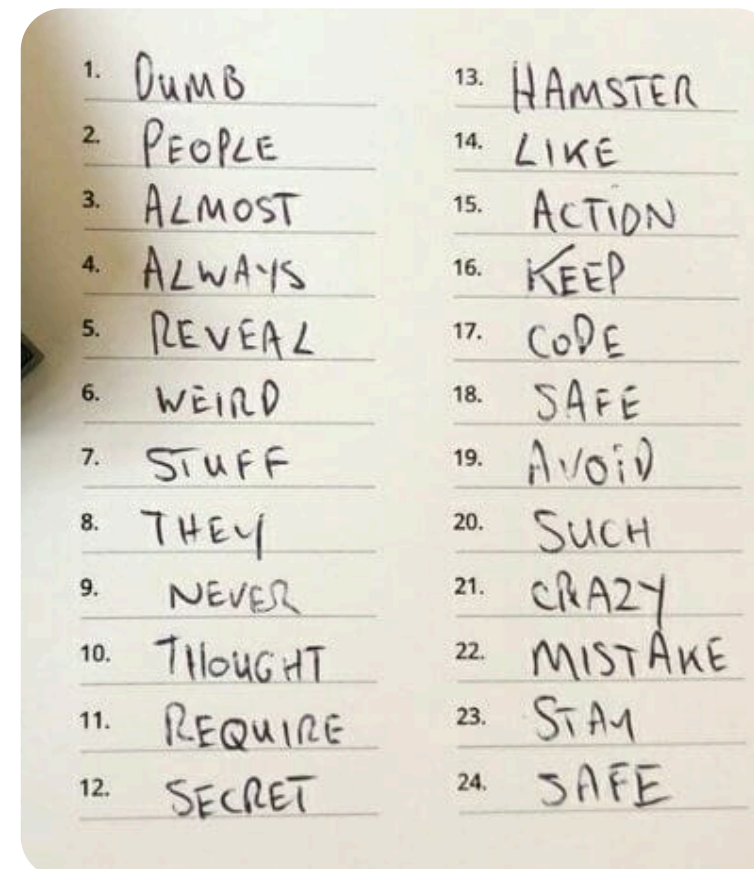 1. DUMB
2. PEOPLE
3. ALMOST
4. ALWAYS
5. REVEAL
6. WEIRD
7. STUFF
8. THEY
9. NEVER
10. THOUGHT
11. REQUIRE
12. SECRET
13. HAMSTER
14. LIKE
15. ACTION
16. KEEP
17. CODE
18. SAFE
19. AVOID
20. SUCH
21. CRAZY
22. MISTAKE
23. STAY
24. SAFE